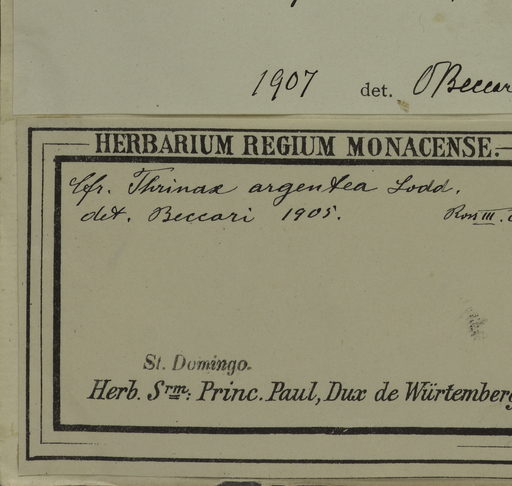 1907 det. OBeccar
HERBARIUM REGIUM MONACENSE.
Cfr. Thrinax argentea Lodd.
det. Beccari 1905.
III.
St. Domingo.
Herb. Srm: Princ. Paul, Dux de Würtemberg